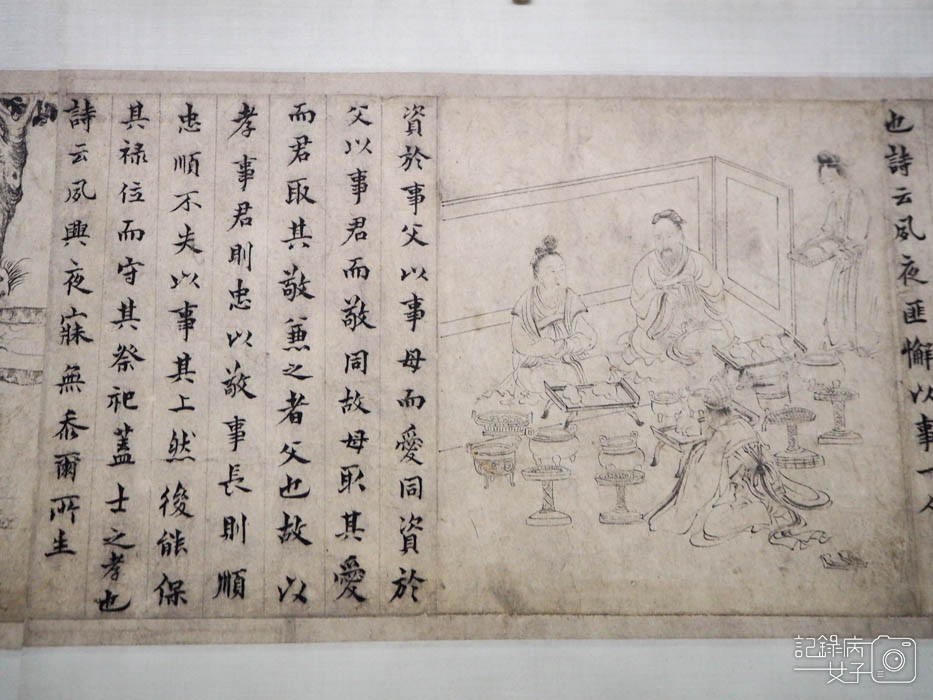 也詩云夙夜匪懈以事一人
資於事父以事母而愛同資於
父以事君而敬同故母取其愛
而君取其敬兼之者父也故以
孝事君則忠以敬事長則順
忠順不失以事其上然後能保
其禄位而守其祭祀蓋士之孝也
詩云夙興夜寐無忝爾所生
記錄病
女子